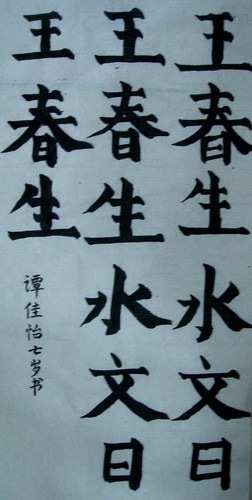 王春生水文日
王春生水文日
王春生
谭佳怡七岁书